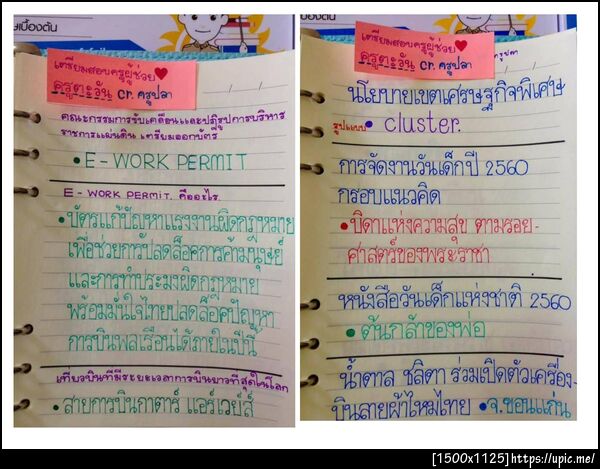 เตรียมสอบครูผู้ช่วย
ครูตะวัน cr. ครูปลา
คณะกรรมการขับเคลื่อนและปฏิรูปการบริหาร
ราชการแผ่นดิน เตรียมออกบัตร
• E-WORK PERMIT
E-WORK PERMIT. คืออะไร.
• บัตรแก้ปัญหาแรงงานผิดกฎหมาย
เพื่อช่วยการปลดล็อคการค้ามนุษย์
และการทำประมงผิดกฎหมาย
พร้อมมั่นใจไทยปลดล็อคปัญหา
การบินพลเรือนได้ภายในปีนี้
เที่ยวบินที่มีระยะเวลาการบินยาวที่สุดในโลก
• สายการบินกาตาร์ แอร์เวย์ส์
เบื้องต้น
เตรียมสอบครูผู้ช่วย
ครูตะวัน cr. ครูปลา
นโยบายเขตเศรษฐกิจพิเศษ
รูปแบบ • cluster.
การจัดงานวันเด็กปี 2560
กรอบแนวคิด
• บิดาแห่งความสุข ตามรอย-
ศาสตร์ของพระราชา
หนังสือวันเด็กแห่งชาติ 2560
• ต้นกล้าของพ่อ
น้ำตาล ชลิตา ร่วมเปิดตัวเครื่อง-
บินลายผ้าไหมไทย • จ.ขอนแก่น
[1500x1125]https://upic.me/